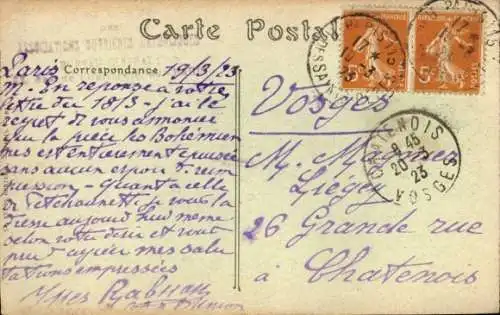 Carte Postale
Correspondance
Paris 19/3/23
M. En réponse à votre
lettre du 18/3 - j'ai le
regret de vous annoncer
que la pièce les Bohémiens
est entièrement épuisée
sans aucun espoir de réim
pression - Quant à celle
de je vous l'a
dresse aujourd'hui même
selon votre désir et vous
prie d'agréer mes salu
tations empressées
Vosges
M. Magnus
Liégey
26 Grande rue
à Chatenois
5c 5c
CHATENOIS
8 45
20 - 3
23
VOSGES